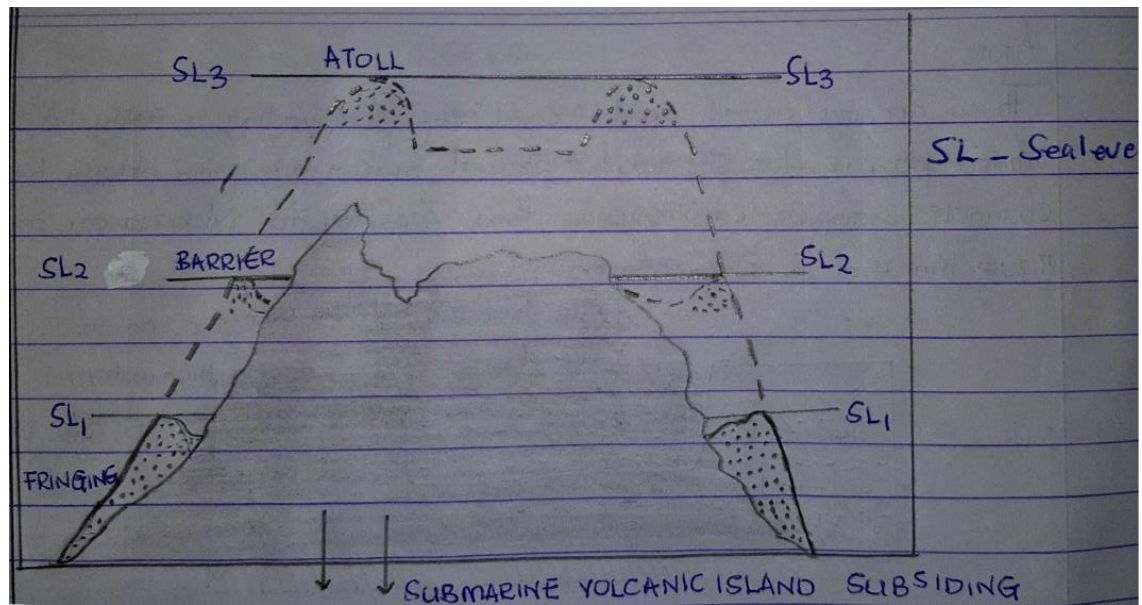 ATOLL
SL3 SL3
SL - Sealeve
SL2 BARRIER SL2
SL1 SL1
FRINGING
SUBMARINE VOLCANIC ISLAND SUBSIDING